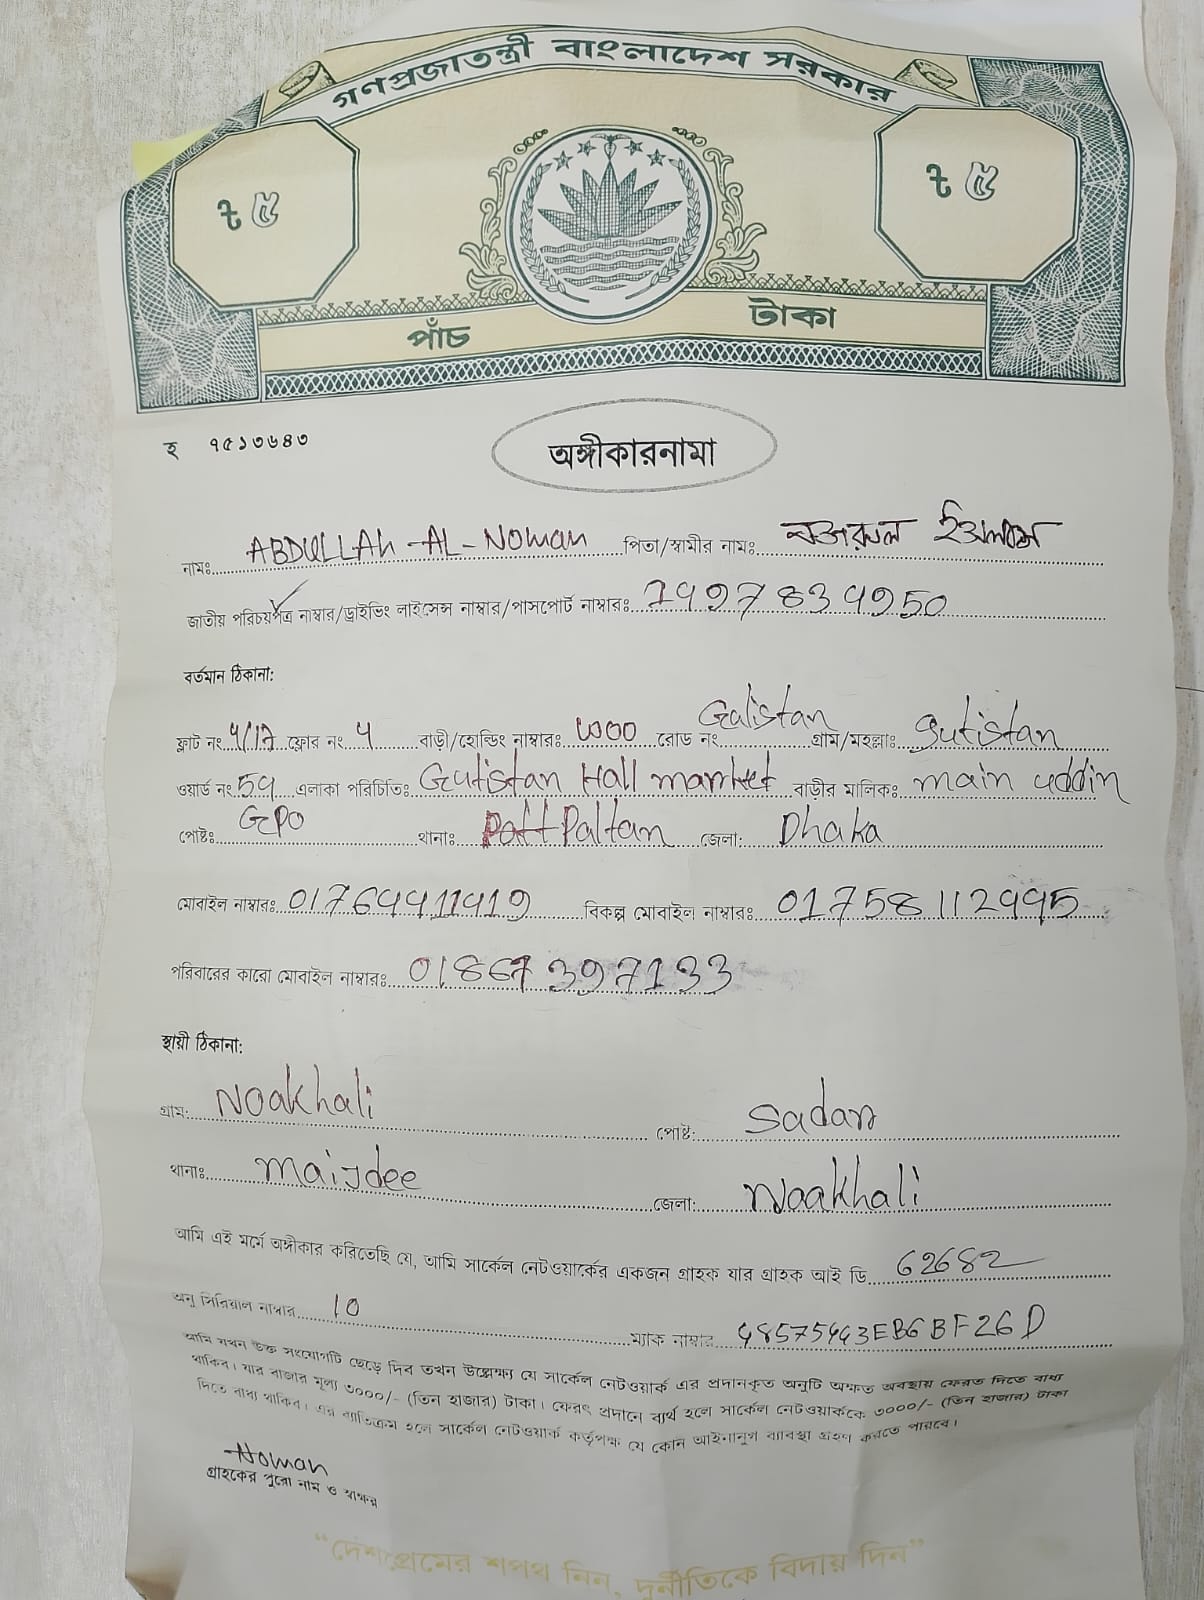 গণপ্রজাতন্ত্রী বাংলাদেশ সরকার
৳ ৫ ৳ ৫
পাঁচ টাকা
হ ৭৫১৩৬৪৩
অঙ্গীকারনামা
নামঃ ABDULLAH-AL-NOMAN পিতা/স্বামীর নামঃ নজরুল ইসলাম
জাতীয় পরিচয়পত্র নাম্বার/ড্রাইভিং লাইসেন্স নাম্বার/পাসপোর্ট নাম্বারঃ
বর্তমান ঠিকানা:
ফ্লাট নং ফ্লোর নং 4 বাড়ী/হোল্ডিং নাম্বারঃ রোড নং Gulistan গ্রাম/মহল্লাঃ Gulistan
ওয়ার্ড নং এলাকা পরিচিতিঃ Gulistan Hall market বাড়ীর মালিকঃ main uddin
পোষ্টঃ GPO থানাঃ Paltan জেলা: Dhaka
মোবাইল নাম্বারঃ বিকল্প মোবাইল নাম্বারঃ
পরিবারের কারো মোবাইল নাম্বারঃ
স্থায়ী ঠিকানা:
গ্রাম: Noakhali পোষ্ট: Sadar
থানাঃ Maijdee জেলা: Noakhali
আমি এই মর্মে অঙ্গীকার করিতেছি যে, আমি সার্কেল নেটওয়ার্কের একজন গ্রাহক যার গ্রাহক আই ডি 62682
অনু সিরিয়াল নাম্বার 10 ম্যাক নাম্বার 48575443EB6BF26D
আমি যখন উক্ত সংযোগটি ছেড়ে দিব তখন উল্লেক্ষ্য যে সার্কেল নেটওয়ার্ক এর প্রদানকৃত অনুটি অক্ষত অবস্থায় ফেরত দিতে বাধ্য
থাকিব। যার বাজার মূল্য ৩০০০/- (তিন হাজার) টাকা। ফেরৎ প্রদানে ব্যর্থ হলে সার্কেল নেটওয়ার্ককে ৩০০০/- (তিন হাজার) টাকা
দিতে বাধ্য থাকিব। এর ব্যতিক্রম হলে সার্কেল নেটওয়ার্ক কর্তৃপক্ষ যে কোন আইনানুগ ব্যবস্থা গ্রহণ করতে পারবে।
Noman
গ্রাহকের পুরো নাম ও স্বাক্ষর
"দেশপ্রেমের শপথ নিন, দুর্নীতিকে বিদায় দিন"